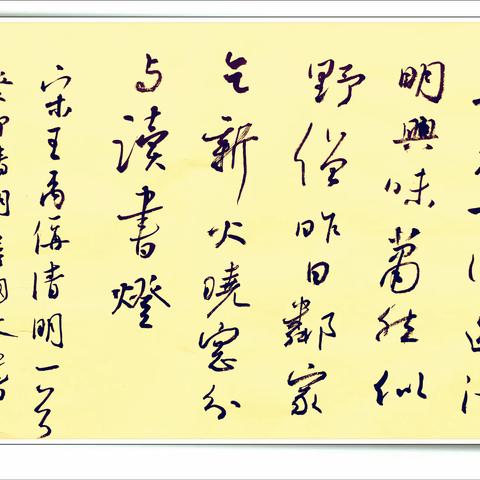 明興味蕭然似
野僧昨日鄰家
乞新火曉窗分
与讀書燈
宋王禹偁清明一首